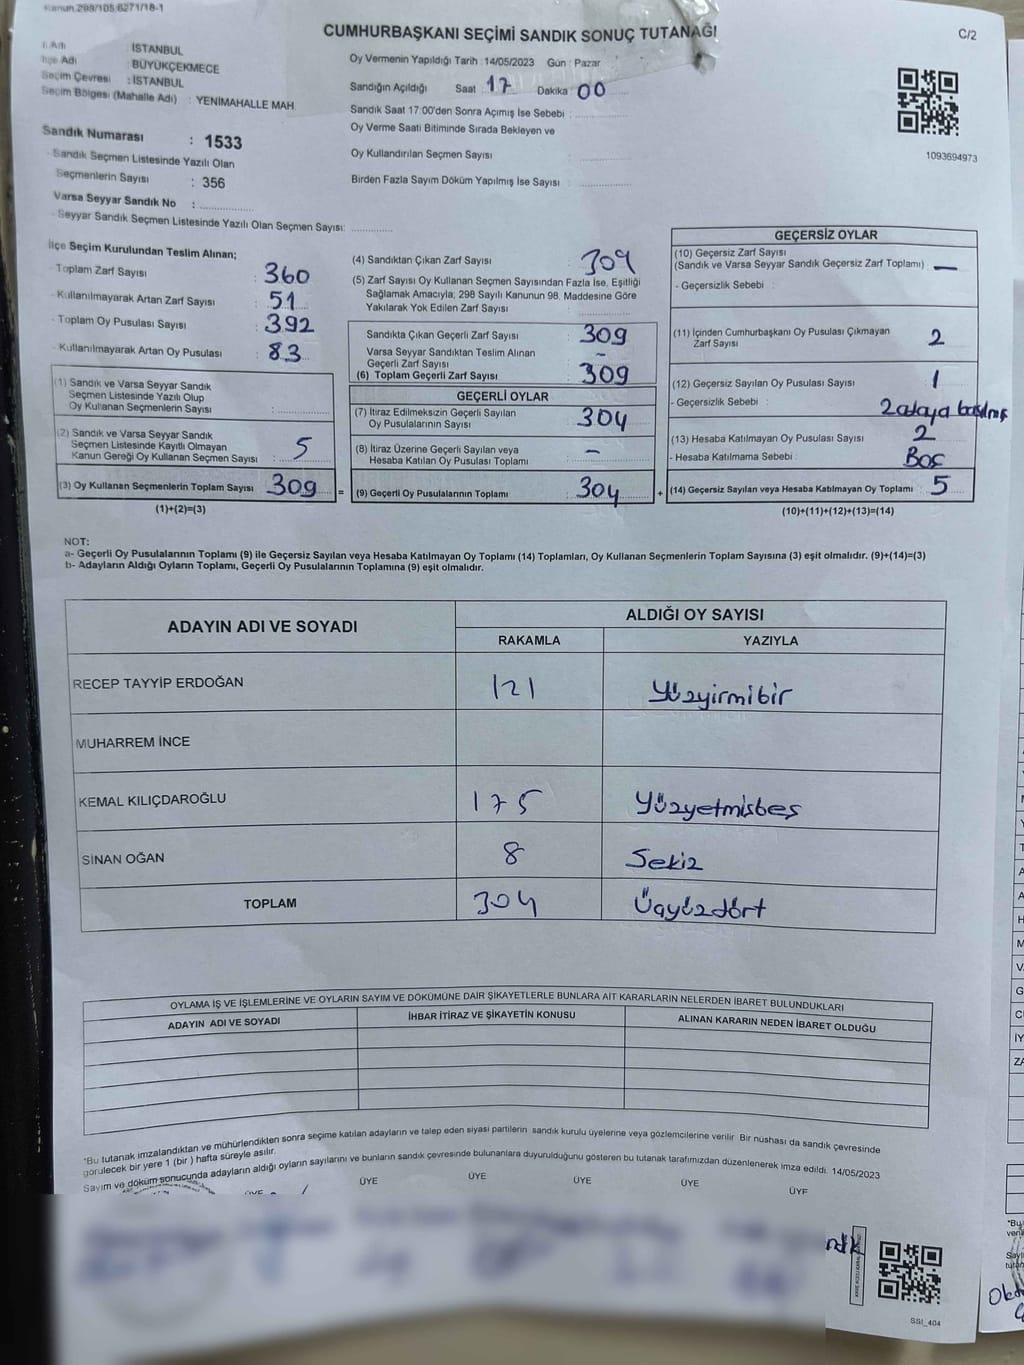 Kanun 298/105,6271/18-1
CUMHURBAŞKANI SEÇİMİ SANDIK SONUÇ TUTANAĞI
C/2
İl Adı : İSTANBUL
İlçe Adı : BÜYÜKÇEKMECE
Seçim Çevresi : İSTANBUL
Seçim Bölgesi (Mahalle Adı) : YENİMAHALLE MAH.
Oy Vermenin Yapıldığı Tarih : 14/05/2023 Gün : Pazar
Sandığın Açıldığı Saat : 17 Dakika 00
Sandık Saat 17:00'den Sonra Açımış İse Sebebi :
Oy Verme Saati Bitiminde Sırada Bekleyen ve
Oy Kullandırılan Seçmen Sayısı :
Birden Fazla Sayım Döküm Yapılmış İse Sayısı :
1093694973
Sandık Numarası : 1533
- Sandık Seçmen Listesinde Yazılı Olan
Seçmenlerin Sayısı : 356
Varsa Seyyar Sandık No :
- Seyyar Sandık Seçmen Listesinde Yazılı Olan Seçmen Sayısı:
İlçe Seçim Kurulundan Teslim Alınan;
- Toplam Zarf Sayısı : 360
- Kullanılmayarak Artan Zarf Sayısı : 51
- Toplam Oy Pusulası Sayısı : 392
- Kullanılmayarak Artan Oy Pusulası : 83
(1) Sandık ve Varsa Seyyar Sandık
Seçmen Listesinde Yazılı Olup
Oy Kullanan Seçmenlerin Sayısı :
(2) Sandık ve Varsa Seyyar Sandık
Seçmen Listesinde Kayıtlı Olmayan
Kanun Gereği Oy Kullanan Seçmen Sayısı : 5
(3) Oy Kullanan Seçmenlerin Toplam Sayısı 309 =
(1)+(2)=(3)
(4) Sandıktan Çıkan Zarf Sayısı : 309
(5) Zarf Sayısı Oy Kullanan Seçmen Sayısından Fazla İse, Eşitliği
Sağlamak Amacıyla, 298 Sayılı Kanunun 98. Maddesine Göre
Yakılarak Yok Edilen Zarf Sayısı :
Sandıkta Çıkan Geçerli Zarf Sayısı : 309
Varsa Seyyar Sandıktan Teslim Alınan
Geçerli Zarf Sayısı : -
(6) Toplam Geçerli Zarf Sayısı : 309
GEÇERLİ OYLAR
(7) İtiraz Edilmeksizin Geçerli Sayılan
Oy Pusulalarının Sayısı : 304
(8) İtiraz Üzerine Geçerli Sayılan veya
Hesaba Katılan Oy Pusulası Toplamı : -
(9) Geçerli Oy Pusulalarının Toplamı : 304 +
GEÇERSİZ OYLAR
(10) Geçersiz Zarf Sayısı
(Sandık ve Varsa Seyyar Sandık Geçersiz Zarf Toplamı) : -
- Geçersizlik Sebebi :
(11) İçinden Cumhurbaşkanı Oy Pusulası Çıkmayan
Zarf Sayısı : 2
(12) Geçersiz Sayılan Oy Pusulası Sayısı : 1
- Geçersizlik Sebebi : 2 adaya basılmış
(13) Hesaba Katılmayan Oy Pusulası Sayısı : 2
- Hesaba Katılmama Sebebi : Boş
(14) Geçersiz Sayılan veya Hesaba Katılmayan Oy Toplamı : 5
(10)+(11)+(12)+(13)=(14)
NOT:
a- Geçerli Oy Pusulalarının Toplamı (9) ile Geçersiz Sayılan veya Hesaba Katılmayan Oy Toplamı (14) Toplamları, Oy Kullanan Seçmenlerin Toplam Sayısına (3) eşit olmalıdır. (9)+(14)=(3)
b- Adayların Aldığı Oyların Toplamı, Geçerli Oy Pusulalarının Toplamına (9) eşit olmalıdır.
ADAYIN ADI VE SOYADI
ALDIĞI OY SAYISI
RAKAMLA YAZIYLA
RECEP TAYYİP ERDOĞAN 121 Yüzyirmibir
MUHARREM İNCE
KEMAL KILIÇDAROĞLU 175 Yüzyetmişbeş
SİNAN OĞAN 8 Sekiz
TOPLAM 304 Üçyüzdört
OYLAMA İŞ VE İŞLEMLERİNE VE OYLARIN SAYIM VE DÖKÜMÜNE DAİR ŞİKAYETLERLE BUNLARA AİT KARARLARIN NELERDEN İBARET BULUNDUKLARI
ADAYIN ADI VE SOYADI İHBAR İTİRAZ VE ŞİKAYETİN KONUSU ALINAN KARARIN NEDEN İBARET OLDUĞU
*Bu tutanak imzalandıktan ve mühürlendikten sonra seçime katılan adayların ve talep eden siyasi partilerin sandık kurulu üyelerine veya gözlemcilerine verilir. Bir nüshası da sandık çevresinde
görülecek bir yere 1 (bir ) hafta süreyle asılır.
Sayım ve döküm sonucunda adayların aldığı oyların sayılarını ve bunların sandık çevresinde bulunanlara duyurulduğunu gösteren bu tutanak tarafımızdan düzenlenerek imza edildi. 14/05/2023
ÜYE ÜYE ÜYE ÜYE ÜYE ÜYE
SSI_404